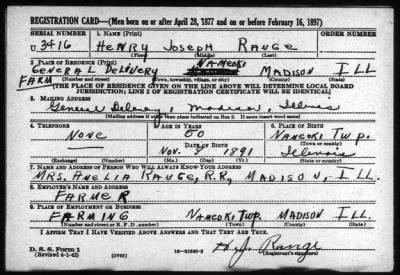 REGISTRATION CARD—(Men born on or after April 28, 1877 and on or before February 16, 1897)
SERIAL NUMBER 1. NAME (Print) ORDER NUMBER
U 3416 HENRY JOSEPH RANGE
(First) (Middle) (Last)
2. PLACE OF RESIDENCE (Print) NAMEOKI
GENERAL DELIVERY MADISON ILL
FARM (Number and street) (Town, township, village, or city) (County) (State)
[THE PLACE OF RESIDENCE GIVEN ON THE LINE ABOVE WILL DETERMINE LOCAL BOARD
JURISDICTION; LINE 2 OF REGISTRATION CERTIFICATE WILL BE IDENTICAL]
3. MAILING ADDRESS
General Delivery, Madison, Illinois
[Mailing address if other than place indicated on line 2. If same insert word same]
4. TELEPHONE 5. AGE IN YEARS 6. PLACE OF BIRTH
NONE 50 NAMEOKI TWP.
DATE OF BIRTH (Town or county)
NOV. 1891 Illinois
(Exchange) (Number) (Mo.) (Day) (Yr.) (State or country)
7. NAME AND ADDRESS OF PERSON WHO WILL ALWAYS KNOW YOUR ADDRESS
MRS. AMELIA RANGE, R.R., MADISON, ILL.
8. EMPLOYER'S NAME AND ADDRESS
FARMER
9. PLACE OF EMPLOYMENT OR BUSINESS
FARMING NAMEOKI TWP. MADISON ILL.
(Number and street or R. F. D. number) (Town) (County) (State)
I AFFIRM THAT I HAVE VERIFIED ABOVE ANSWERS AND THAT THEY ARE TRUE.
D. S. S. Form 1
(Revised 4-1-42) (over) H. J. Range
(Registrant's signature)